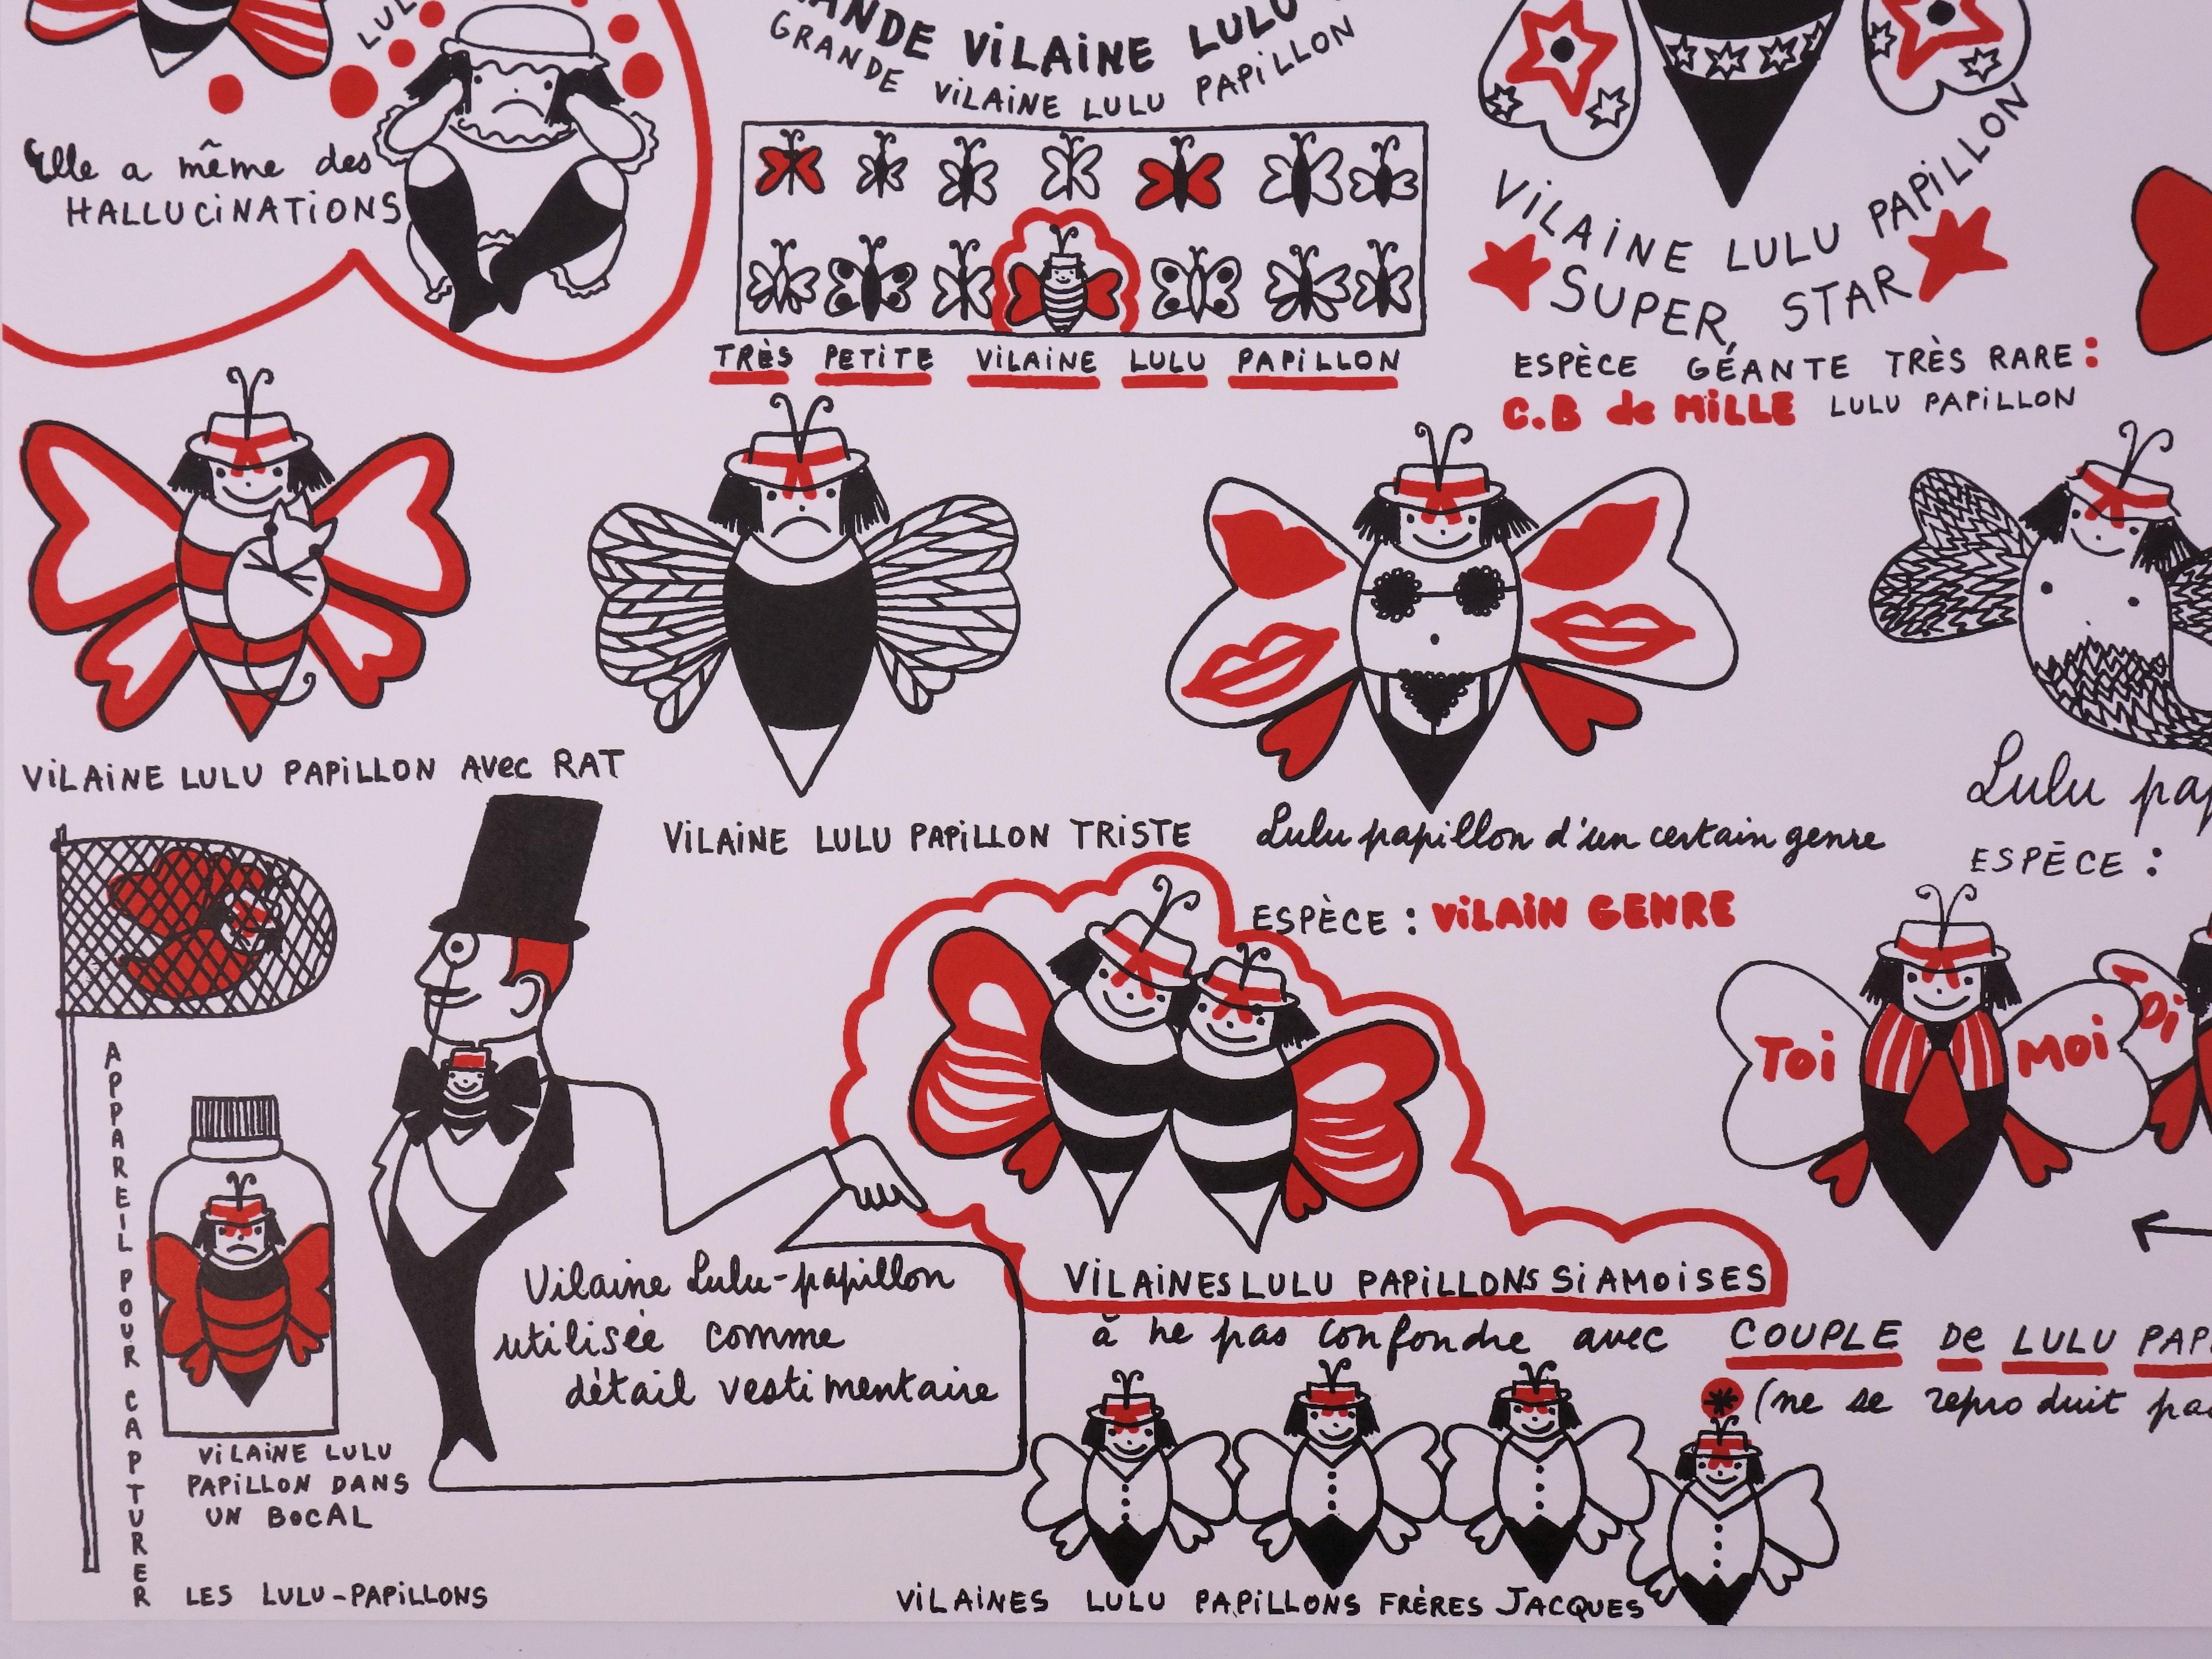 LUL
Elle a même des
HALLUCINATIONS
ANDE VILAINE LULU
GRANDE VILAINE LULU PAPILLON
TRÈS PETITE VILAINE LULU PAPILLON
VILAINE LULU PAPILLON
SUPER, STAR
ESPÈCE GÉANTE TRÈS RARE :
C.B de MILLE LULU PAPILLON
VILAINE LULU PAPILLON AVEC RAT
VILAINE LULU PAPILLON TRISTE
Lulu papillon d'un certain genre
ESPÈCE : VILAIN GENRE
Lulu pap
ESPÈCE :
Toi
Moi
Toi
APPAREIL POUR CAPTURER
LES LULU-PAPILLONS
VILAINE LULU
PAPILLON DANS
UN BOCAL
Vilaine Lulu-papillon
utilisée comme
détail vestimentaire
VILAINES LULU PAPILLONS SIAMOISES
à ne pas confondre avec COUPLE De LULU PAP
* (ne se reproduit pa
VILAINES LULU PAPILLONS FRÈRES JACQUES